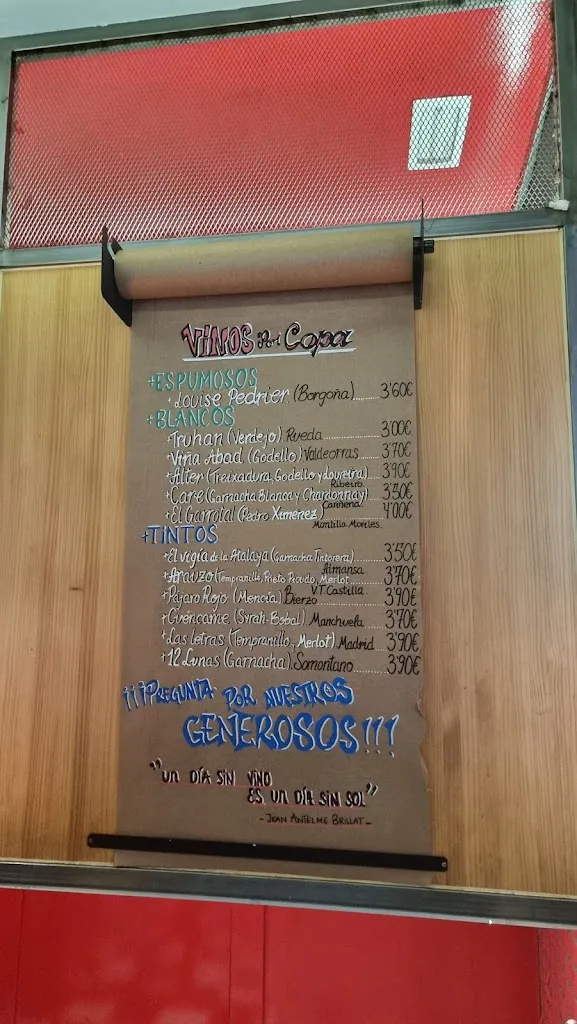 VINOS Por Copa
+ESPUMOSOS
+Louise Pedrier (Borgoña) 3'60€
+BLANCOS
+Truhan (Verdejo) Rueda 3'00€
+Viña Abad (Godello) Valdeorras 3'70€
+Alter (Treixadura, Godello y Loureira) Ribeiro 3'90€
+Care (Garnacha Blanca y Chardonnay) Cariñena 3'50€
+El Garrotal (Pedro Ximenez) Montilla Moriles 4'00€
+TINTOS
+El vegia de la Atalaya (Garnacha Tintorera) Almansa 3'50€
+Arauzo (Tempranillo, Prieto Picudo, Merlot) V.T. Castilla 3'70€
+Pájaro Rojo (Mencia) Bierzo 3'90€
+Cuéncame (Syrah-Bobal) Manchuela 3'70€
+Las letras (Tempranillo, Merlot) Madrid 3'90€
+12 Lunas (Garnacha) Somontano 3'90€
¡¡¡PREGUNTA POR NUESTROS
GENEROSOS!!!
"UN DÍA SIN VINO
ES UN DÍA SIN SOL"
- JEAN ANTELME BRILLAT -